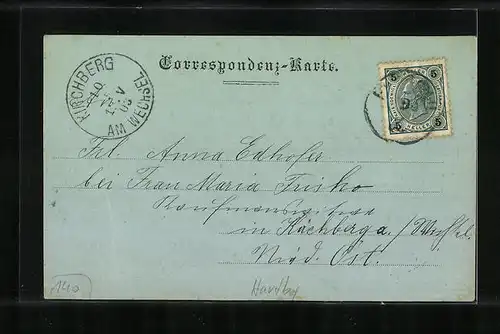 Correspondenz-Karte.
KIRCHBERG
AM WECHSEL
5 5
5 5
Frl. Anna Edhofer
bei Frau Maria Frisko
Kaufmannswitwe
in Kirchberg a/Wechsel
Nied. Öst.
140